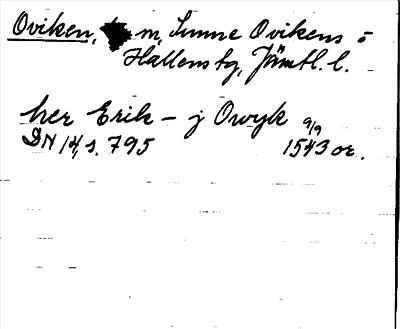 Oviken, m, Sunne Ovikens o
Hallens tg, Jämtl. l.
her Erik - j Owyk 9/9
DN 14, s. 795 1543 or.